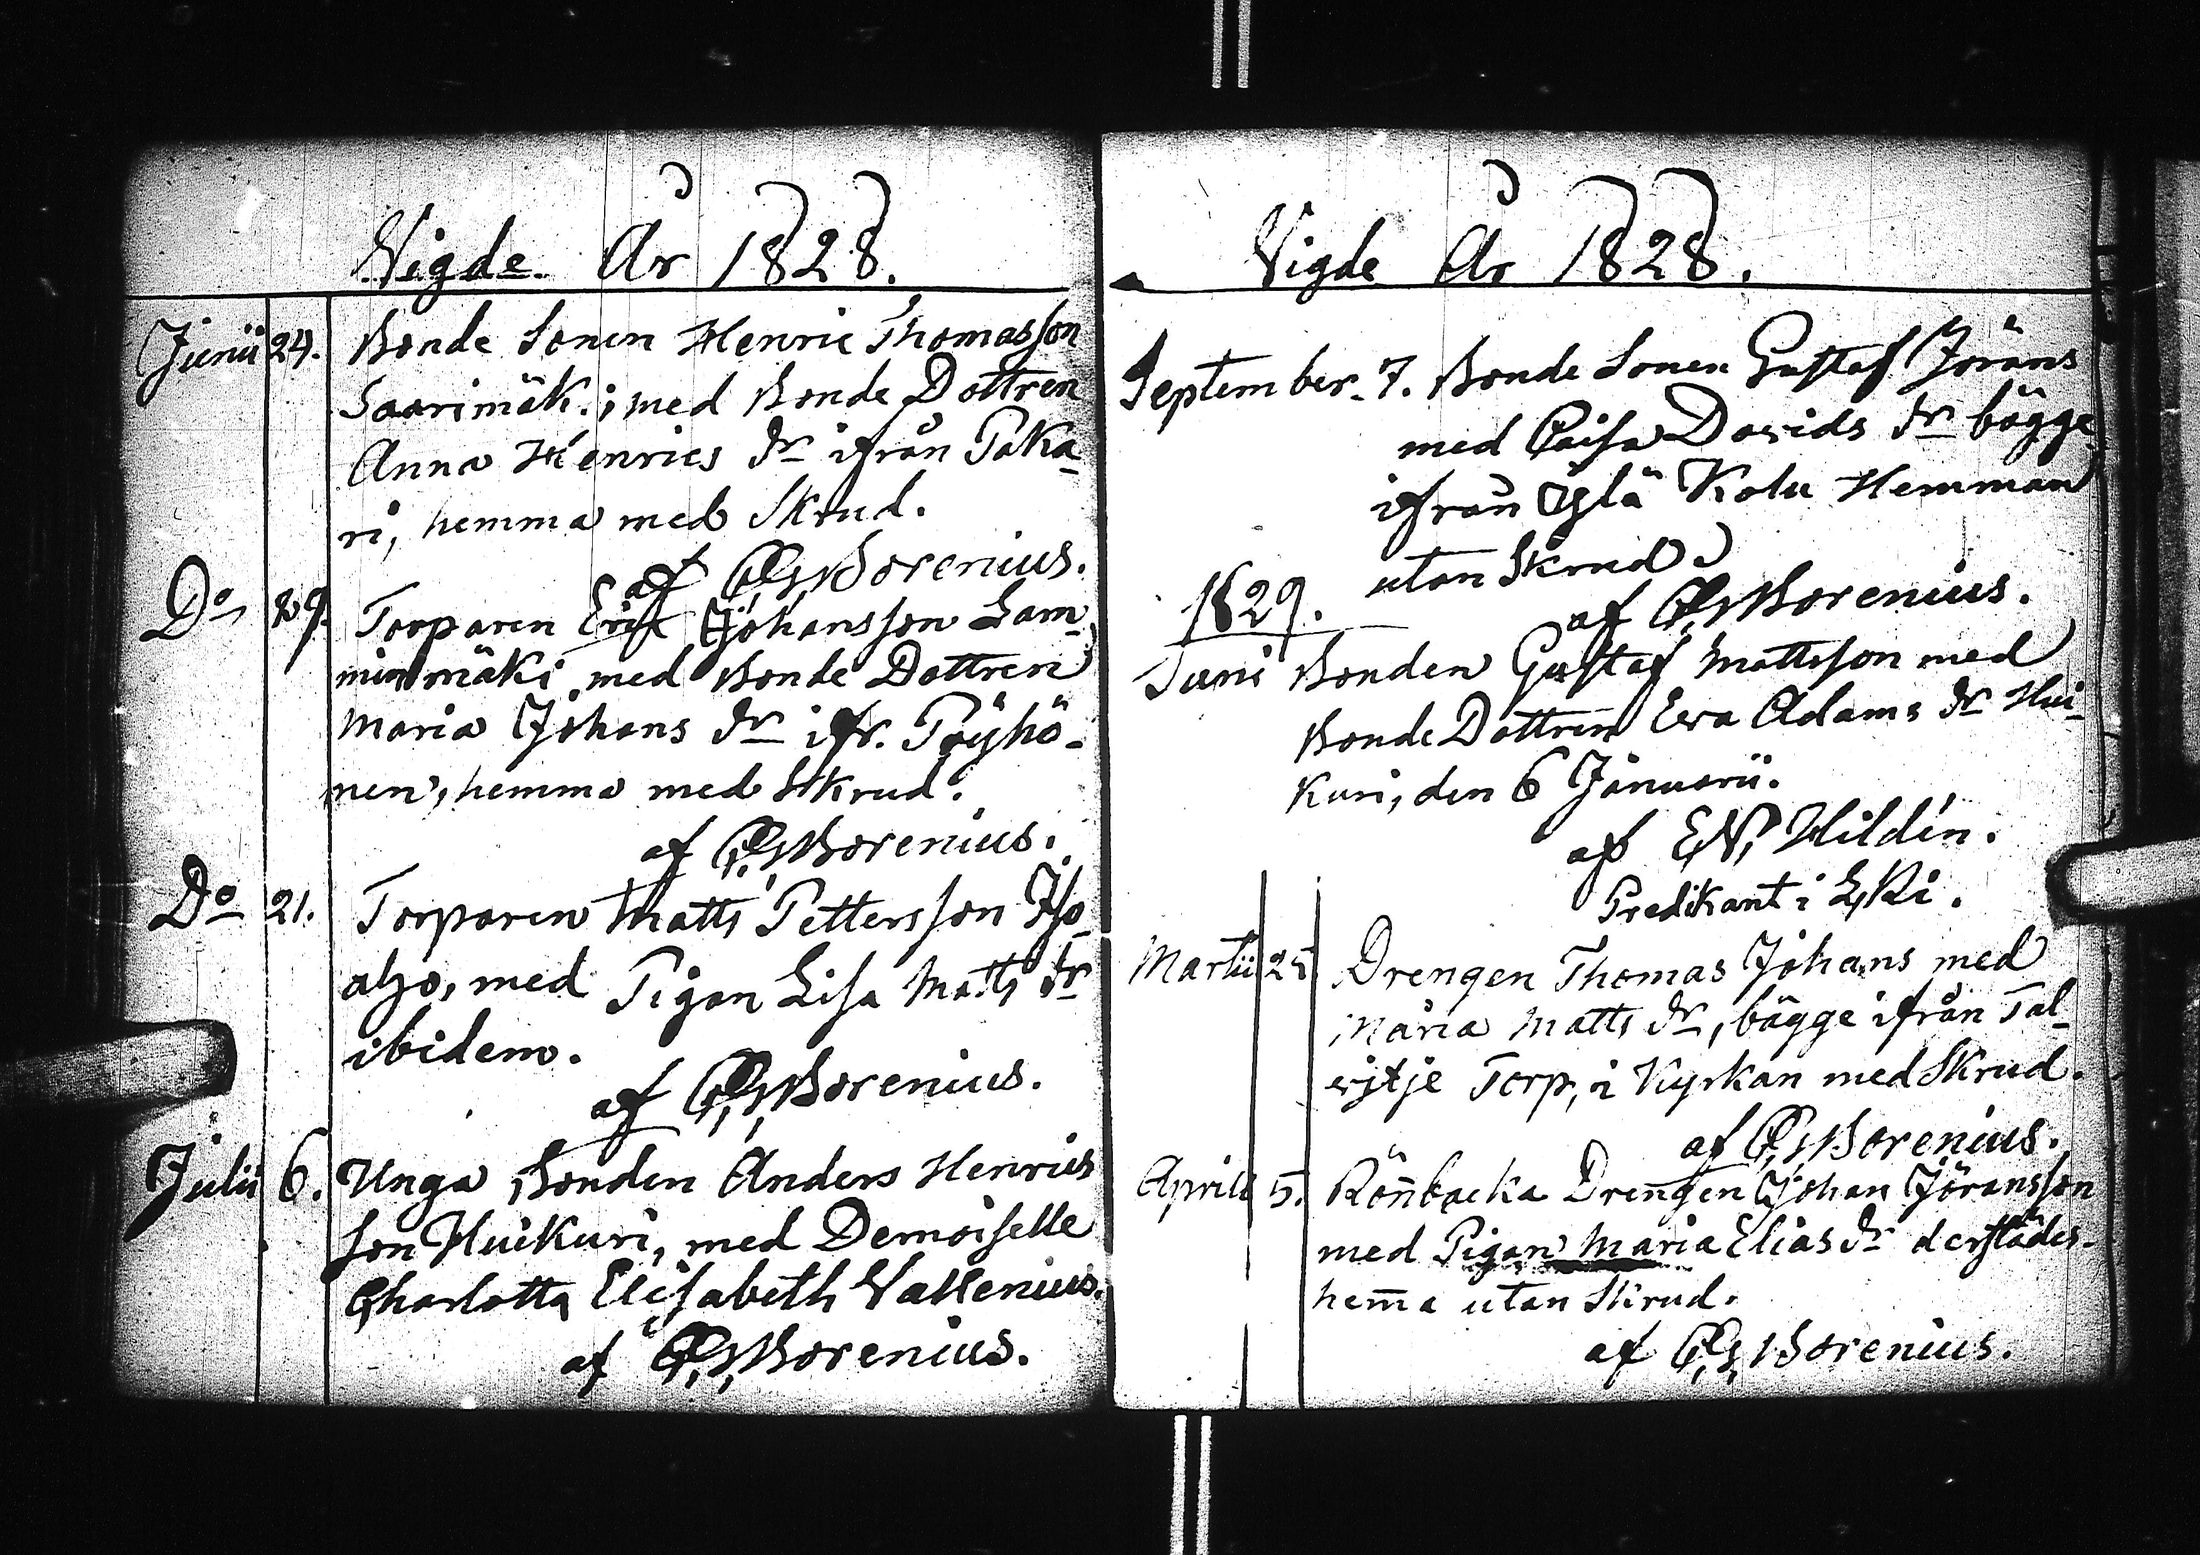 Vigde År 1828.
Junii 24. Bonde Sonen Henric Thomasson
Saarimäki; med Bonde Dottren
Anna Henrics dr ifrån Paka-
ri, hemma med Skrud.
af Borenius.
Do 29. Torparen Erik Johansson Lam-
minmäki med Bonde Dottren
Maria Johans dr ifr. Pöyhö-
nen, hemma med Skrud.
af Borenius.
Do 21. Torparen Matts Pettersson Iso
aho, med Pigan Lisa Matts dr
ibidem.
af Borenius.
Julii 6. Unga Bonden Anders Henrics
son Huikuri, med Demoiselle
Charlotta Elisabeth Vallenius.
af Borenius.
Vigde År 1828.
September 7. Bonde Sonen Gustaf Jörans
med Caisa Davids dr bägge
ifrån Kolu Hemman
utan Skrud.
af Borenius.
1829.
Bonden Gustaf Mattsson med
Bonde Dottren Eva Adams dr Hui-
kuri, den 6 Januarii.
af Hildén.
Predikant i
Martii 25 Drengen Thomas Johans med
Maria Matts dr, bägge ifrån Tal-
Torp, i Kyrkan med Skrud.
af Borenius.
Aprill 5. Rönbacka Drengen Johan Jöransson
med Pigan Maria Elias dr derstädes.
hem̄a utan Skrud.
af Borenius.